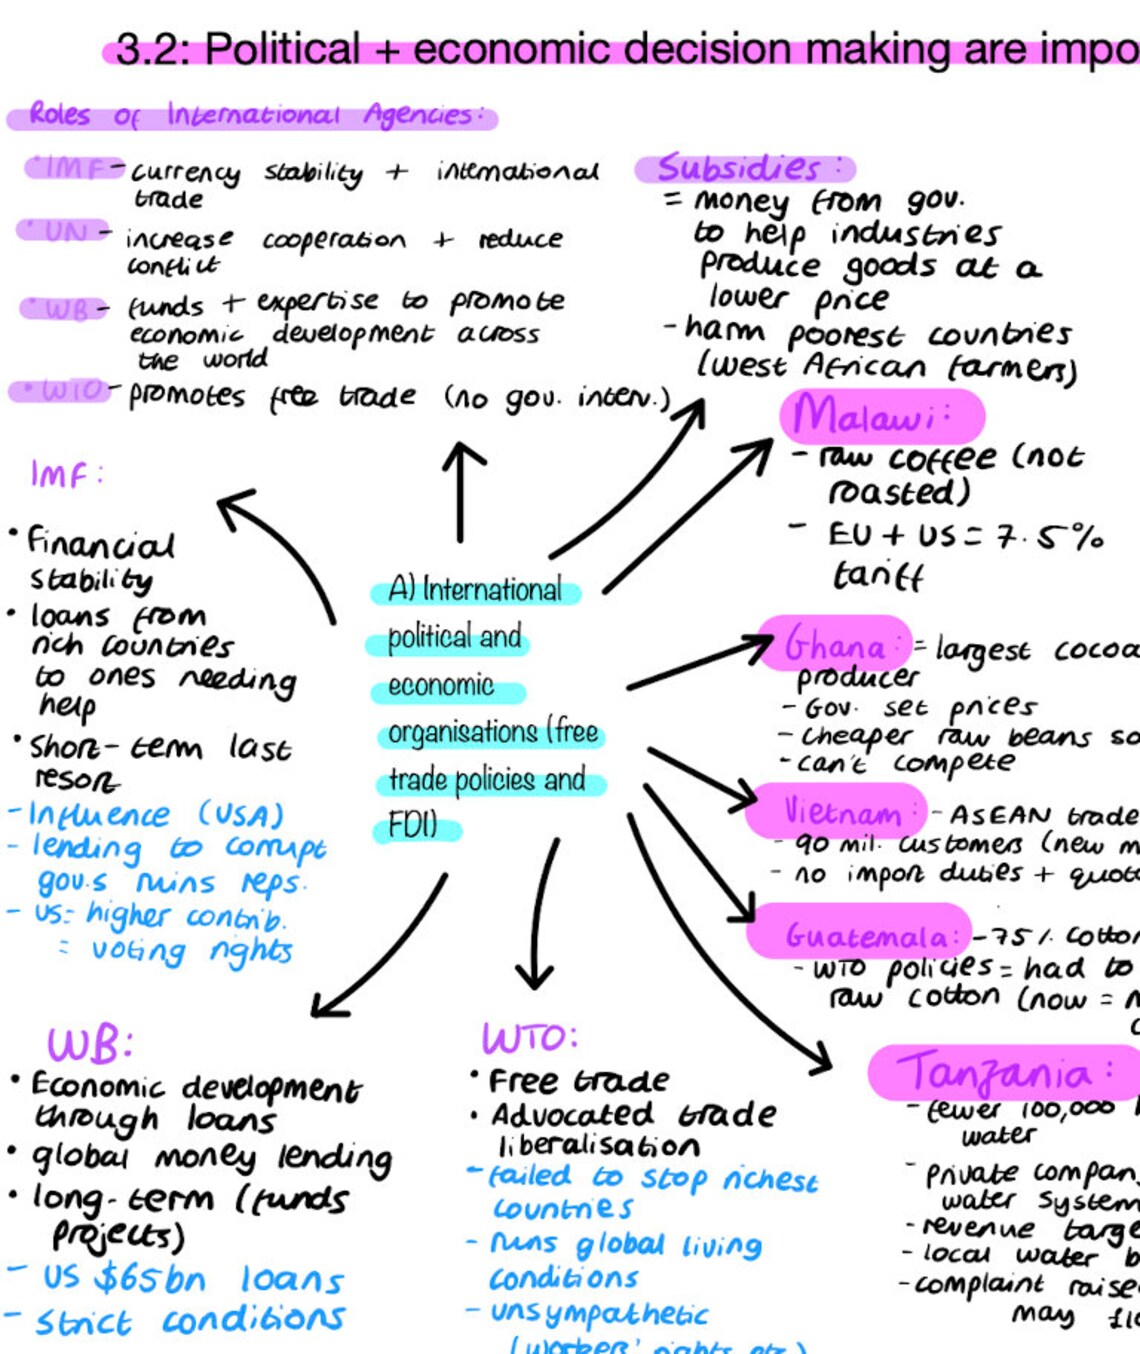 3.2: Political + economic decision making are impo
Roles of International Agencies:
• IMF - currency stability + international
trade
• UN - increase cooperation + reduce
conflict
• WB - funds + expertise to promote
economic development across
the world
• WTO - promotes free trade (no gov. interv.)
Subsidies:
= money from gov.
to help industries
produce goods at a
lower price
- harm poorest countries
(west African farmers)
Malawi:
- raw coffee (not
roasted)
- EU + US = 7.5%
tariff
IMF:
• Financial
stability
• loans from
rich countries
to ones needing
help
• short-term last
resort
- Influence (USA)
- lending to corrupt
gov.s ruins reps.
- US = higher contrib.
= voting rights
A) International
political and
economic
organisations (free
trade policies and
FDI)
Ghana: = largest cocoa
producer
- Gov. set prices
- cheaper raw beans so
- can't compete
Vietnam: - ASEAN trade
- 90 mil. customers (new m
- no import duties + quot
Guatemala: - 75% cotton
- WTO policies = had to
raw cotton (now =
Tanzania:
- fewer 100,000
water
- private compan
water system
- revenue targe
- local water b
- complaint raise
may flo
WB:
• Economic development
through loans
• global money lending
• long-term (funds
projects)
- US $65bn loans
- strict conditions
WTO:
• Free trade
• Advocated trade
liberalisation
- failed to stop richest
countries
- runs global living
conditions
- unsympathetic
(workers' rights etc.)